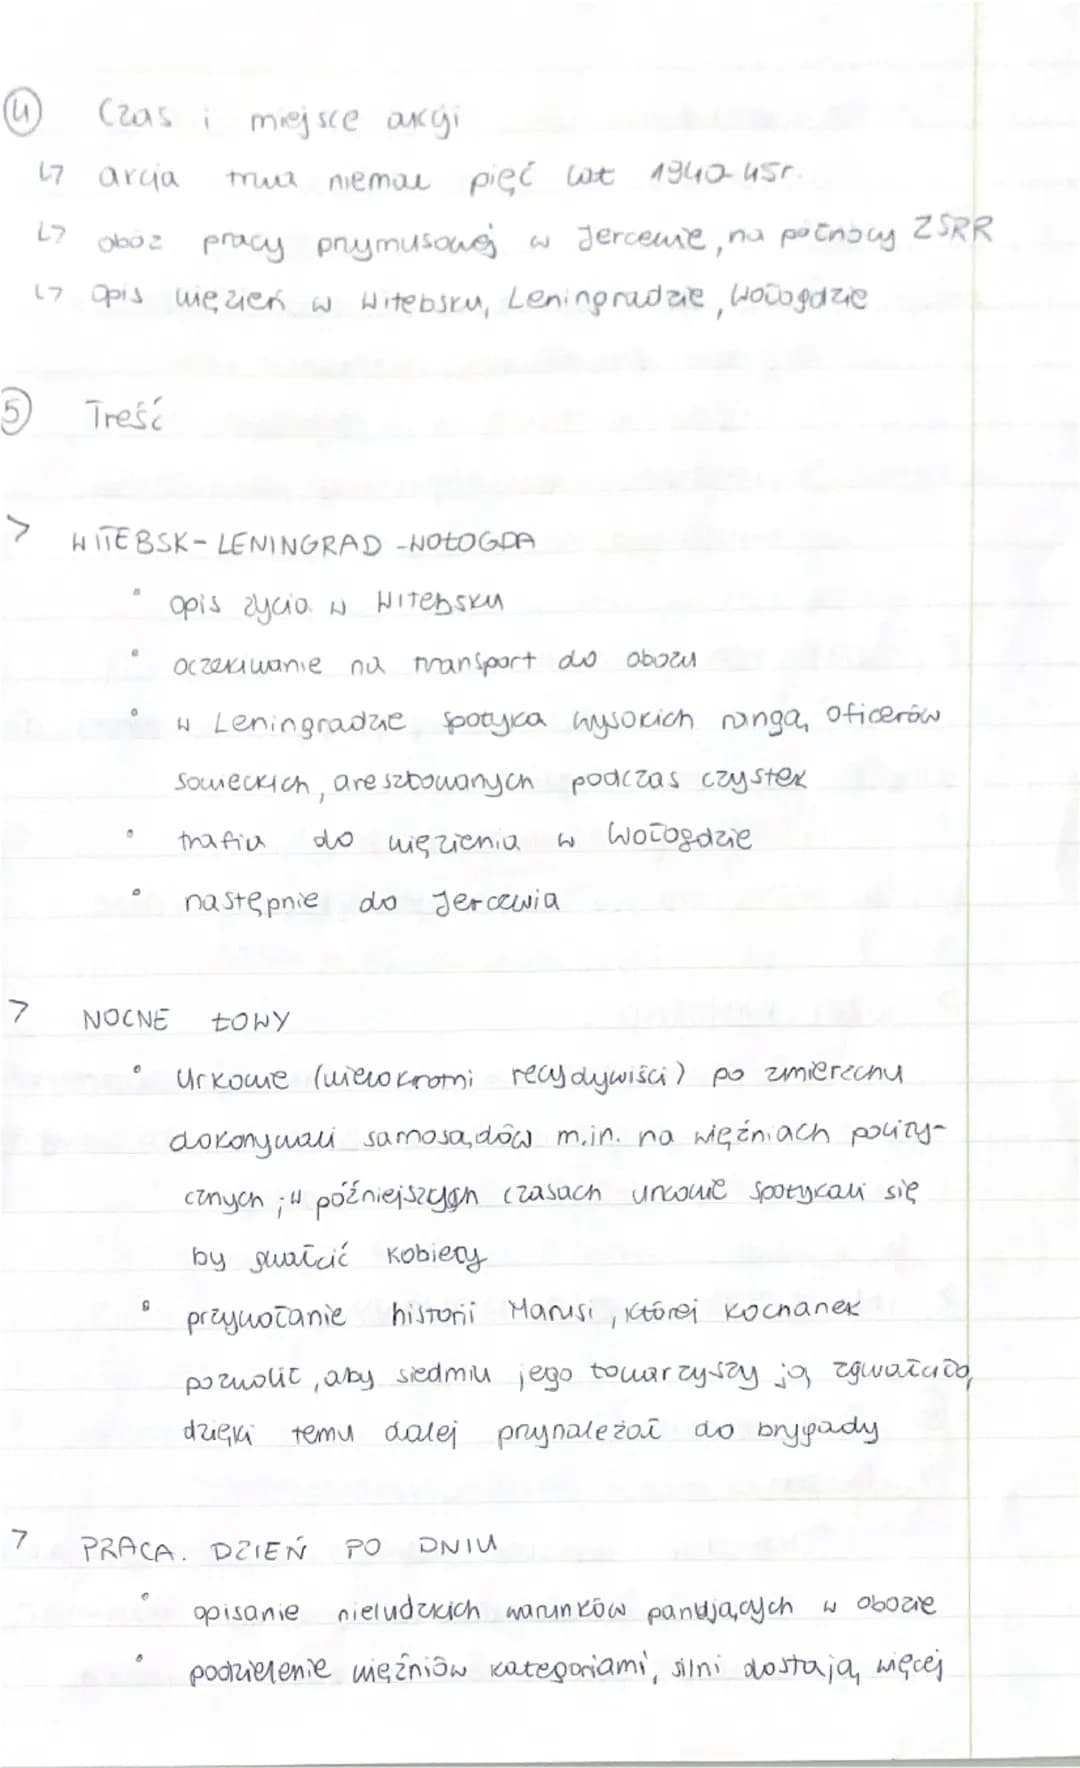 4 Czas i miejsce akcji
↳ akcja trwa niemal pięć lat 1940-45r.
↳ obóz pracy przymusowej w Jercewie, na północy ZSRR
↳ opis więzień w Witebsku, Leningradzie, Wołogdzie
5 Treść
> WITEBSK - LENINGRAD - WOŁOGDA
• opis życia w Witebsku
• oczekiwanie na transport do obozu
• w Leningradzie spotyka wysokich rangą oficerów
sowieckich, aresztowanych podczas czystek
• trafia do więzienia w Wołogdzie
• następnie do Jercewia
> NOCNE ŁOWY
• Urkowie (wielokrotni recydywiści) po zmierzchu
dokonywali samosądów m.in. na więźniach polity-
cznych; w późniejszych czasach urkowie spotykali się
by gwałcić kobiety
• przywołanie historii Marusi, której kochanek
pozwolił, aby siedmiu jego towarzyszy ją zgwałciło,
dzięki temu dalej przynależał do brygady
> PRACA. DZIEŃ PO DNIU
• opisanie nieludzkich warunków panujących w obozie
• podzielenie więźniów kategoriami, silni dostają więcej